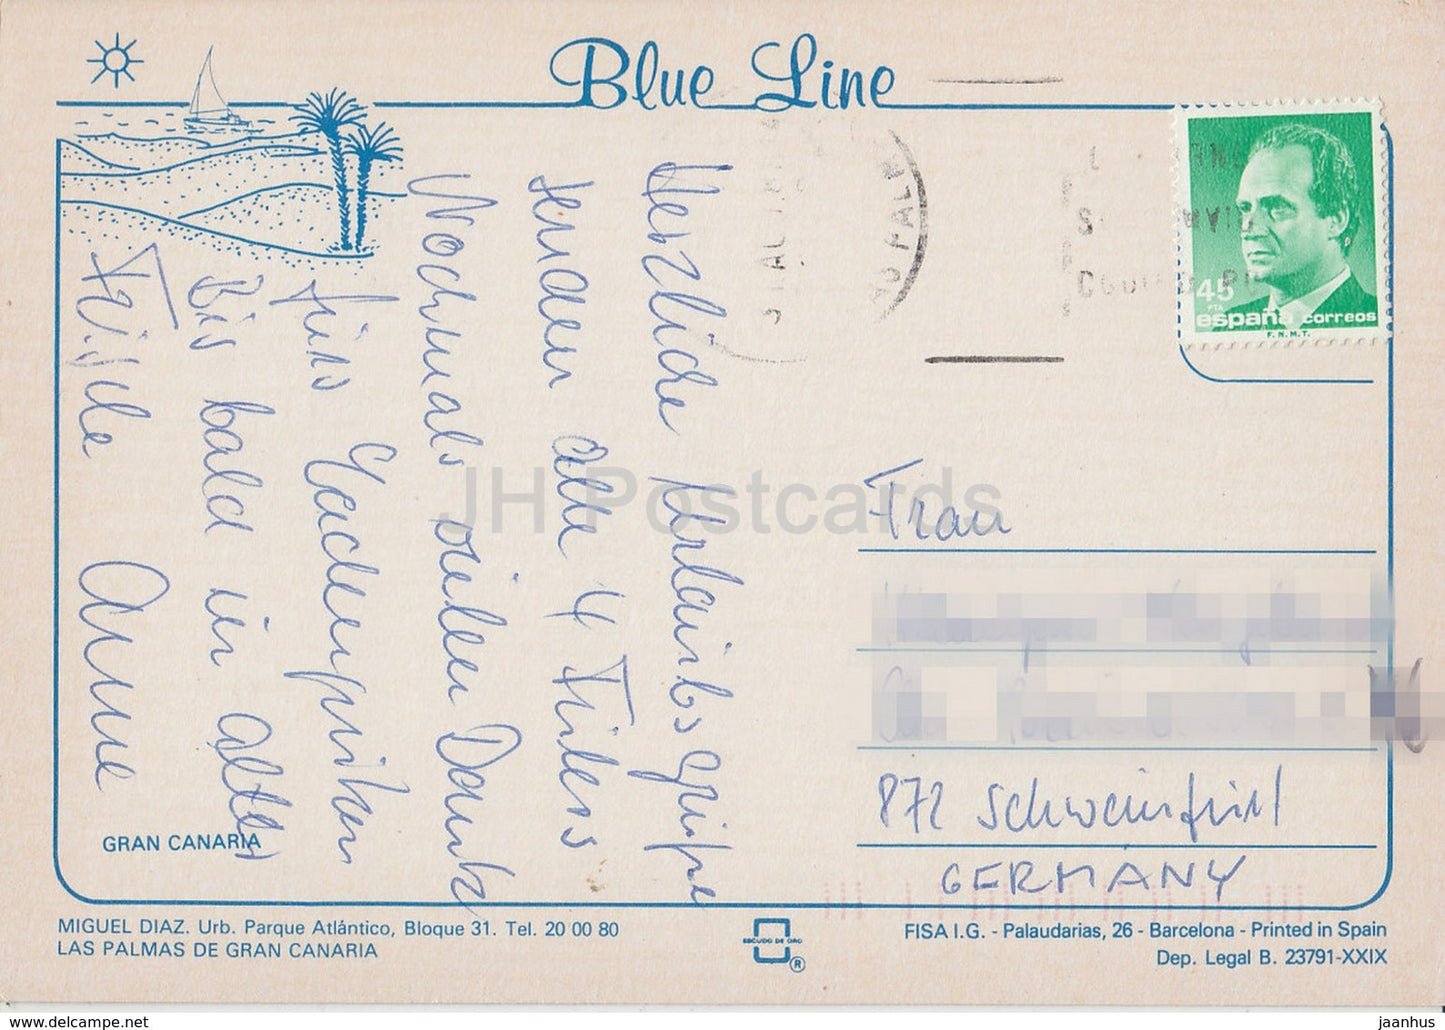 Blue Line
Herzliche Urlaubsgrüße
senden alle 4 Filers
Nochmals vielen Dank
fürs
Bis bald in alter
Frische Anne
GRAN CANARIA
45
PTA
españa correos
F.N.M.T.
Frau
872 Schweinfurt
GERMANY
MIGUEL DIAZ. Urb. Parque Atlántico, Bloque 31. Tel. 20 00 80
LAS PALMAS DE GRAN CANARIA
ESCUDO DE ORO
®
FISA I.G. - Palaudarias, 26 - Barcelona - Printed in Spain
Dep. Legal B. 23791-XXIX
JH Postcards
www.delcampe.net
jaanhus